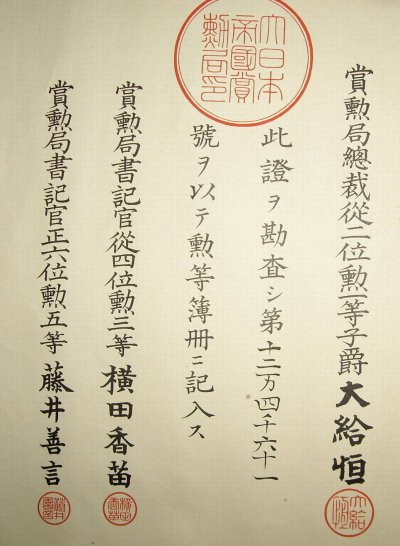 大日本帝國賞勲局印
賞勲局總裁從二位勲一等子爵大給恒
此證ヲ勘査シ第十二万四千六十一
號ヲ以テ勲等簿册ニ記入ス
賞勲局書記官從四位勲三等橫田香苗
橫田香苗
賞勲局書記官正六位勲五等藤井善言
藤井善言